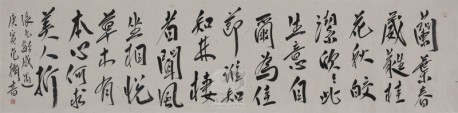 蘭葉春
葳蕤桂
花秋皎
潔欣欣此
生意自
爾為佳
節誰
知林棲
者聞風
坐相悅
草木有
本心何求
美人折
張九齡感遇
庚寅